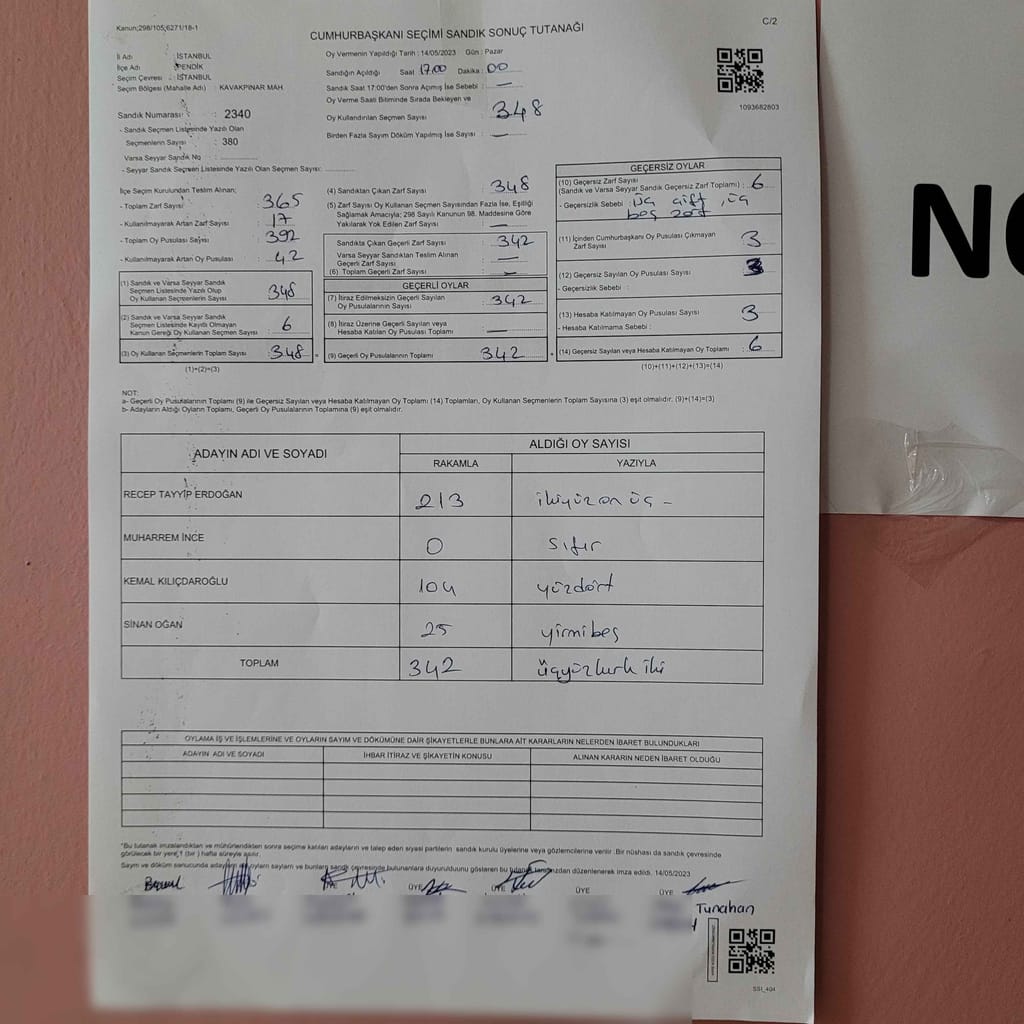 Kanun;298/105;6271/18-1
C/2
CUMHURBAŞKANI SEÇİMİ SANDIK SONUÇ TUTANAĞI
İl Adı : İSTANBUL
İlçe Adı : PENDİK
Seçim Çevresi : İSTANBUL
Seçim Bölgesi (Mahalle Adı) : KAVAKPINAR MAH
Sandık Numarası : 2340
- Sandık Seçmen Listesinde Yazılı Olan
Seçmenlerin Sayısı : 380
Varsa Seyyar Sandık No :
- Seyyar Sandık Seçmen Listesinde Yazılı Olan Seçmen Sayısı:
Oy Vermenin Yapıldığı Tarih : 14/05/2023 Gün : Pazar
Sandığın Açıldığı Saat 17.00 Dakika : 00
Sandık Saat 17:00'den Sonra Açımış İse Sebebi : —
Oy Verme Saati Bitiminde Sırada Bekleyen ve
Oy Kullandırılan Seçmen Sayısı : 348
Birden Fazla Sayım Döküm Yapılmış İse Sayısı : —
1093682803
İlçe Seçim Kurulundan Teslim Alınan;
- Toplam Zarf Sayısı : 365
- Kullanılmayarak Artan Zarf Sayısı : 17
- Toplam Oy Pusulası Sayısı : 392
- Kullanılmayarak Artan Oy Pusulası : 42
(1) Sandık ve Varsa Seyyar Sandık
Seçmen Listesinde Yazılı Olup
Oy Kullanan Seçmenlerin Sayısı : 348
(2) Sandık ve Varsa Seyyar Sandık
Seçmen Listesinde Kayıtlı Olmayan
Kanun Gereği Oy Kullanan Seçmen Sayısı : 6
(3) Oy Kullanan Seçmenlerin Toplam Sayısı : 348
(1)+(2)=(3)
(4) Sandıktan Çıkan Zarf Sayısı : 348
(5) Zarf Sayısı Oy Kullanan Seçmen Sayısından Fazla İse, Eşitliği
Sağlamak Amacıyla; 298 Sayılı Kanunun 98. Maddesine Göre
Yakılarak Yok Edilen Zarf Sayısı : —
Sandıkta Çıkan Geçerli Zarf Sayısı : 342
Varsa Seyyar Sandıktan Teslim Alınan
Geçerli Zarf Sayısı : —
(6) Toplam Geçerli Zarf Sayısı : —
GEÇERLİ OYLAR
(7) İtiraz Edilmeksizin Geçerli Sayılan
Oy Pusulalarının Sayısı : 342
(8) İtiraz Üzerine Geçerli Sayılan veya
Hesaba Katılan Oy Pusulası Toplamı : —
(9) Geçerli Oy Pusulalarının Toplamı : 342
GEÇERSİZ OYLAR
(10) Geçersiz Zarf Sayısı
(Sandık ve Varsa Seyyar Sandık Geçersiz Zarf Toplamı) : 6
- Geçersizlik Sebebi : üç çift, üç
boş zarf
(11) İçinden Cumhurbaşkanı Oy Pusulası Çıkmayan
Zarf Sayısı : 3
(12) Geçersiz Sayılan Oy Pusulası Sayısı : 3
- Geçersizlik Sebebi :
(13) Hesaba Katılmayan Oy Pusulası Sayısı : 3
- Hesaba Katılmama Sebebi :
(14) Geçersiz Sayılan veya Hesaba Katılmayan Oy Toplamı : 6
(10)+(11)+(12)+(13)=(14)
NOT:
a- Geçerli Oy Pusulalarının Toplamı (9) ile Geçersiz Sayılan veya Hesaba Katılmayan Oy Toplamı (14) Toplamları, Oy Kullanan Seçmenlerin Toplam Sayısına (3) eşit olmalıdır. (9)+(14)=(3)
b- Adayların Aldığı Oyların Toplamı, Geçerli Oy Pusulalarının Toplamına (9) eşit olmalıdır.
ADAYIN ADI VE SOYADI
ALDIĞI OY SAYISI
RAKAMLA YAZIYLA
RECEP TAYYİP ERDOĞAN 213 ikiyüz on üç -
MUHARREM İNCE 0 sıfır
KEMAL KILIÇDAROĞLU 104 yüzdört
SİNAN OĞAN 25 yirmibeş
TOPLAM 342 üçyüzkırk iki
OYLAMA İŞ VE İŞLEMLERİNE VE OYLARIN SAYIM VE DÖKÜMÜNE DAİR ŞİKAYETLERLE BUNLARA AİT KARARLARIN NELERDEN İBARET BULUNDUKLARI
ADAYIN ADI VE SOYADI İHBAR İTİRAZ VE ŞİKAYETİN KONUSU ALINAN KARARIN NEDEN İBARET OLDUĞU
"Bu tutanak imzalandıktan ve mühürlendikten sonra seçime katılan adayların ve talep eden siyasi partilerin sandık kurulu üyelerine veya gözlemcilerine verilir. Bir nüshası da sandık çevresinde
görülecek bir yere 1 (bir) hafta süreyle asılır.
Sayım ve döküm sonucunda adayların oyların sayıları ve bunların sandık çevresinde bulunanlara duyurulduğunu gösteren bu tutanak tarafımızdan düzenlenerek imza edildi. 14/05/2023
ÜYE ÜYE ÜYE ÜYE
Tunahan
SSI_404
NO